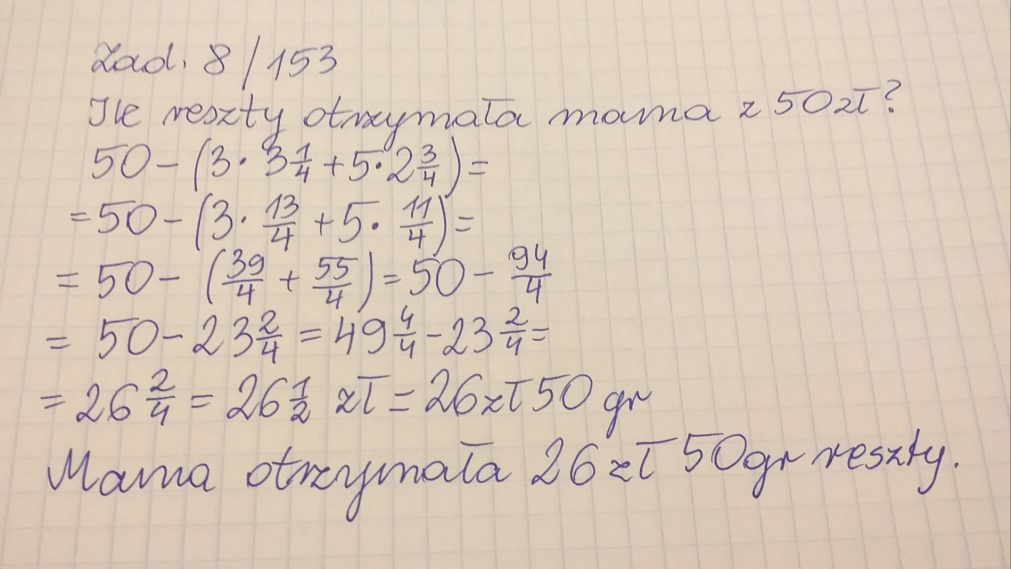 Zad. 8/153
Ile reszty otrzymała mama z 50 zł?
50 - (3 · 3 1/4 + 5 · 2 3/4) =
= 50 - (3 · 13/4 + 5 · 11/4) =
= 50 - (39/4 + 55/4) = 50 - 94/4
= 50 - 23 2/4 = 49 4/4 - 23 2/4 =
= 26 2/4 = 26 1/2 zł = 26 zł 50 gr
Mama otrzymała 26 zł 50 gr reszty.